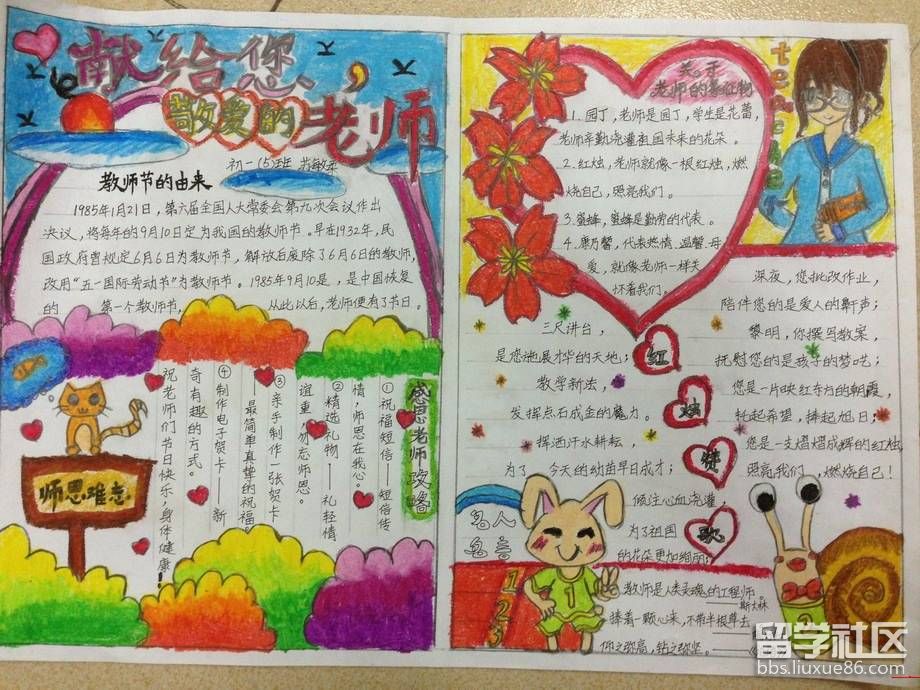 献给您、
敬爱的老师
初一(5)班
教师节的由来
1985年1月21日，第六届全国人大常委会第九次会议作出
决议，将每年的9月10日定为我国的教师节。早在1932年，民
国政府曾规定6月6日为教师节，解放后废除了6月6日的教师节，
改用“五一国际劳动节”为教师节。1985年9月10是，是中国恢复
的 第一个教师节， 从此以后，老师便有了节日。
感恩老师攻略
①祝福短信——短信传
情，师恩在我心。
②精选礼物——礼轻情
谊重，勿忘师恩。
③亲手制作一张贺卡
——最简单真挚的祝福
④制作电子贺卡——新
奇有趣的方式。
祝老师们节日快乐、身体健康！
师恩难忘
关。于
老师的象征物
1.园丁，老师是园丁，学生是花蕾，
老师辛勤浇灌祖国未来的花朵。
2.红烛，老师就像一根红烛，燃
烧自己，照亮我们。
3.蜜蜂，蜜蜂是勤劳的代表。
4.康乃馨，代表热情、温馨、母
爱，就像老师一样关
怀着我们。
红烛赞歌
三尺讲台，
是您施展才华的天地；
教学新法，
发挥点石成金的魔力。
挥洒汗水耕耘，
为了 今天的幼苗早日成才；
倾注心血浇灌，
为了祖国
的花朵更加绚丽；
深夜，您批改作业，
陪伴您的是爱人的鼾声；
黎明，你撰写教案，
抚慰您的是孩子的梦呓；
您是一片映红东方的朝霞，
托起希望，捧起旭日；
您是一支熠熠成辉的红烛，
照亮我们，燃烧自己！
名人
名言
123
1
2
教师是人类灵魂的工程师。
——斯大林
捧着一颗心来，不带半根草去
仰之弥高，钻之弥坚。
留学社区
bbs.liuxue86.com